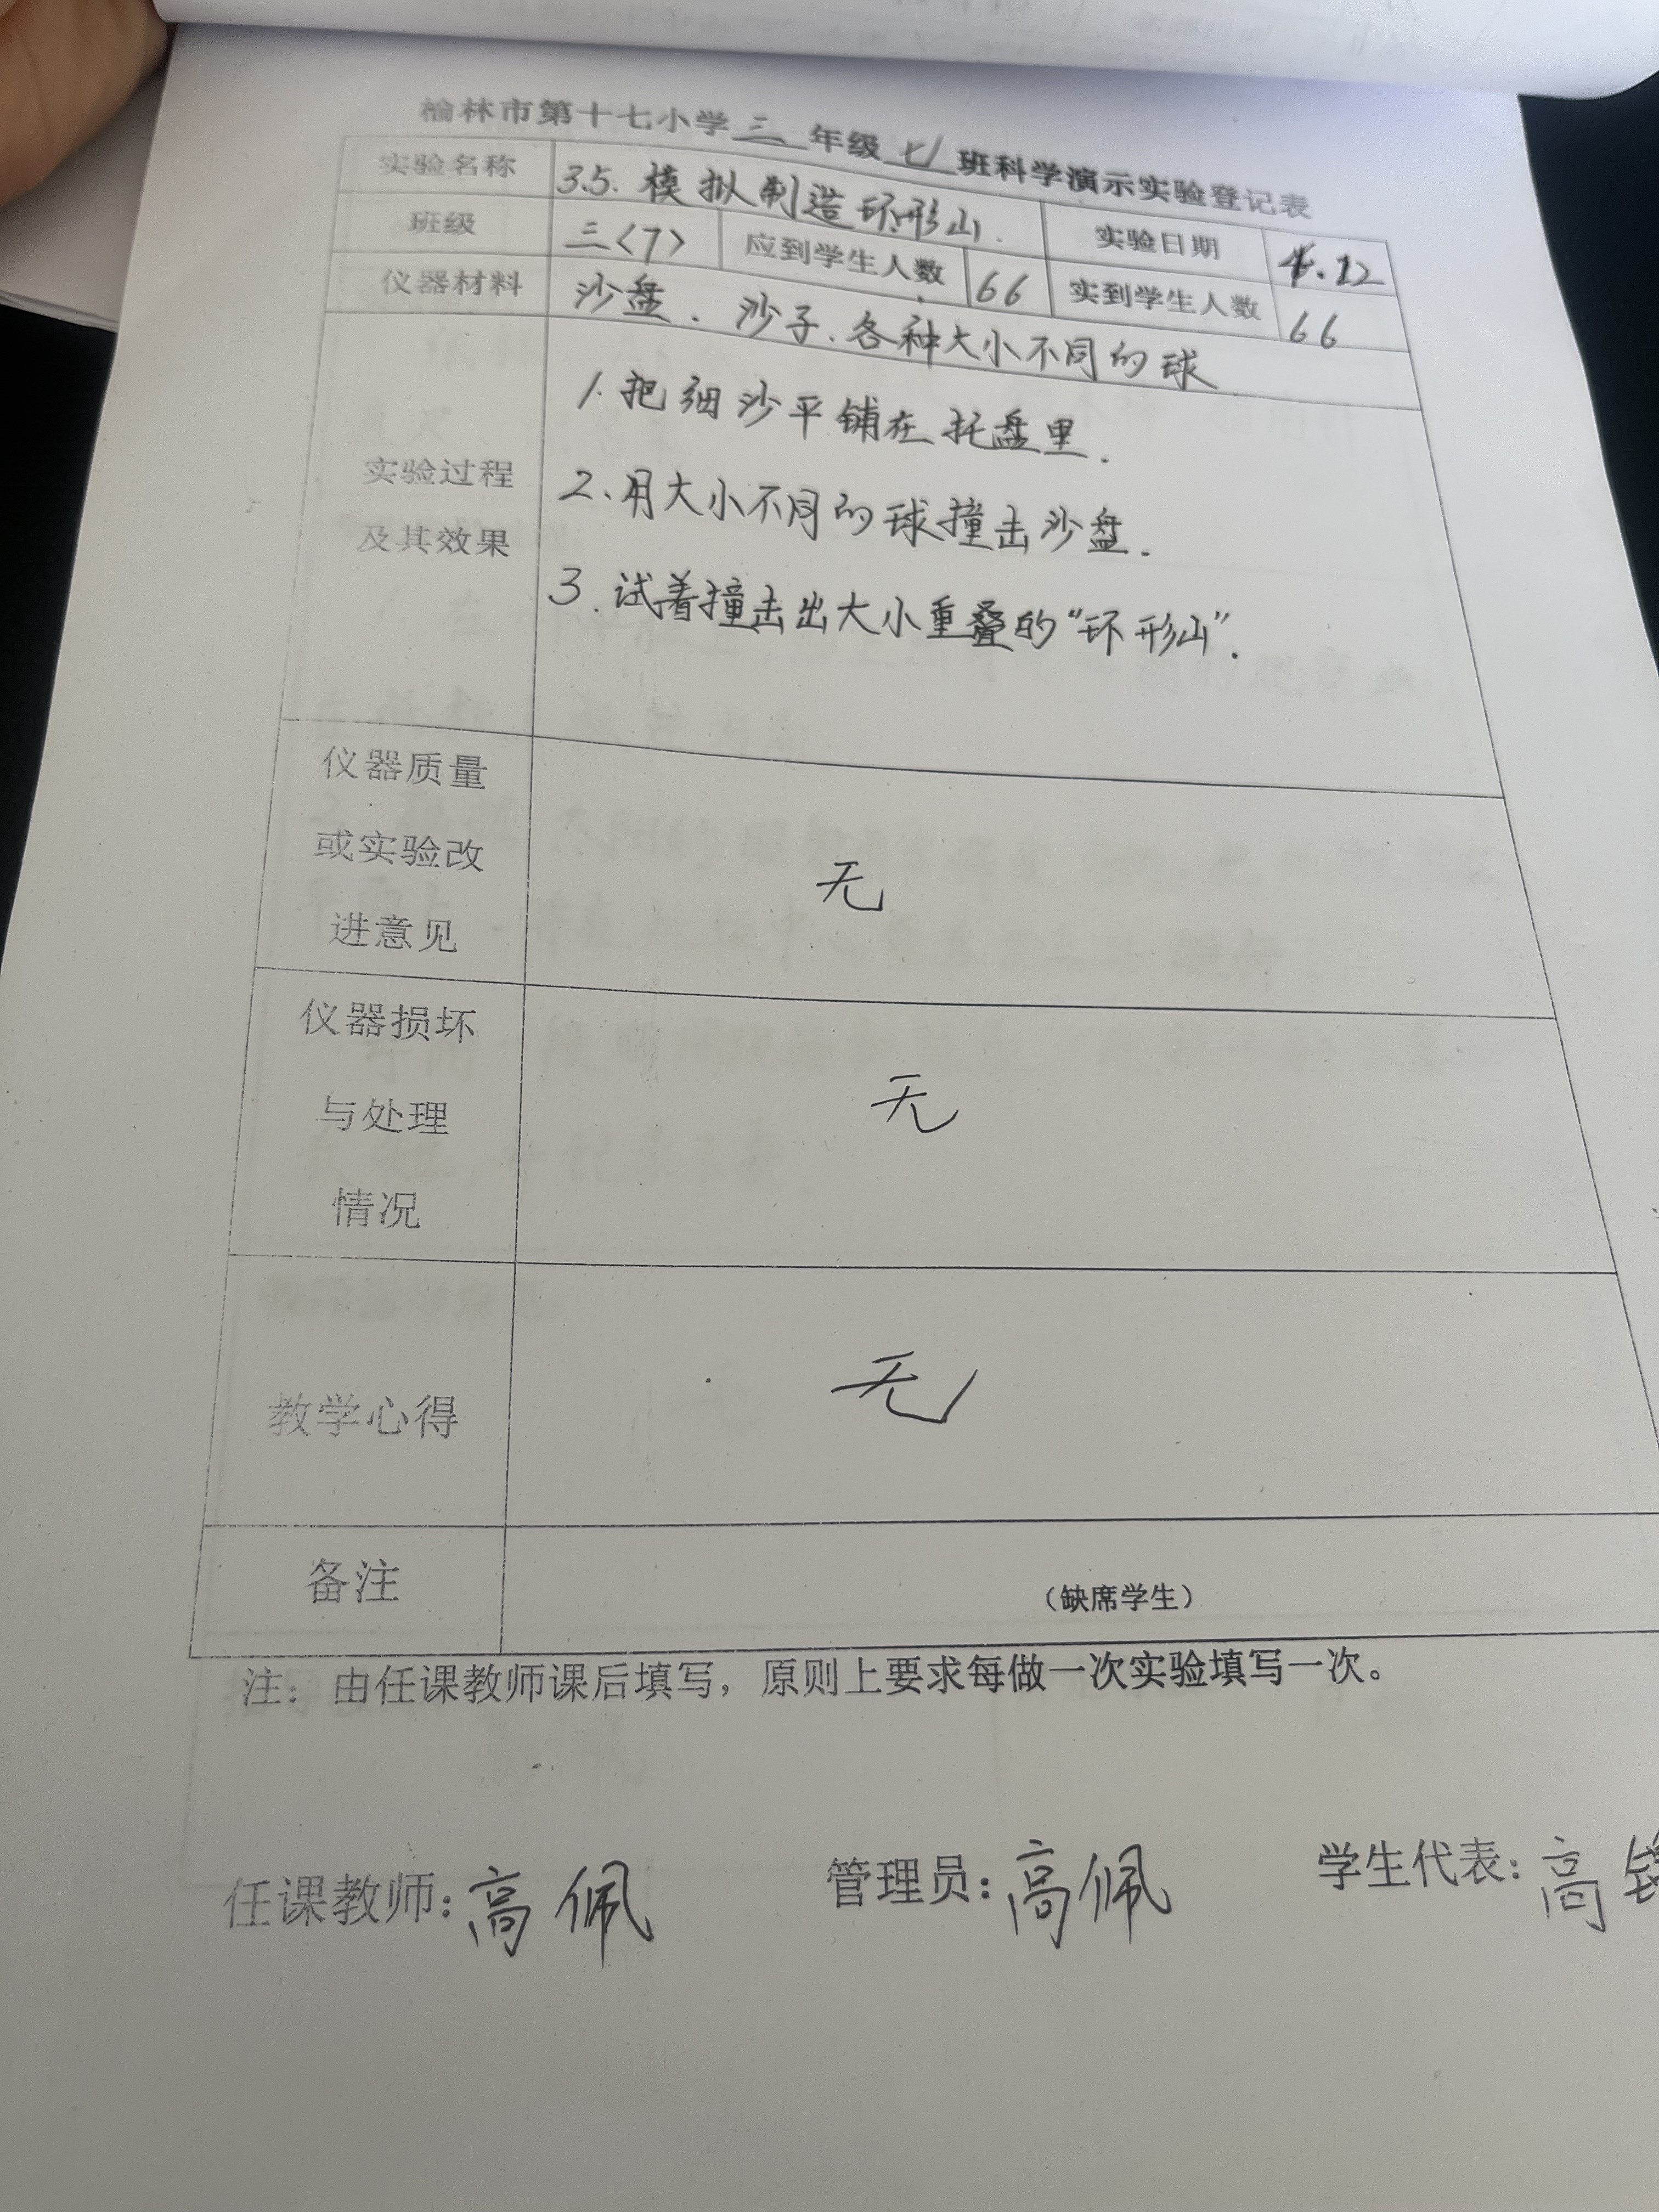 榆林市第十七小学三年级七班科学演示实验登记表
实验名称 3.5.模拟制造环形山. 实验日期 4.12
班级 三<7> 应到学生人数 66 实到学生人数 66
仪器材料 沙盘、沙子、各种大小不同的球
实验过程及其效果
1.把细沙平铺在托盘里.
2、用大小不同的球撞击沙盘.
3.试着撞击出大小重叠的“环形山”.
仪器质量
或实验改
进意见
无
仪器损坏
与处理
情况
无
教学心得 无
备注 （缺席学生）
注：由任课教师课后填写，原则上要求每做一次实验填写一次。
任课教师:高佩 管理员:高佩 学生代表:高